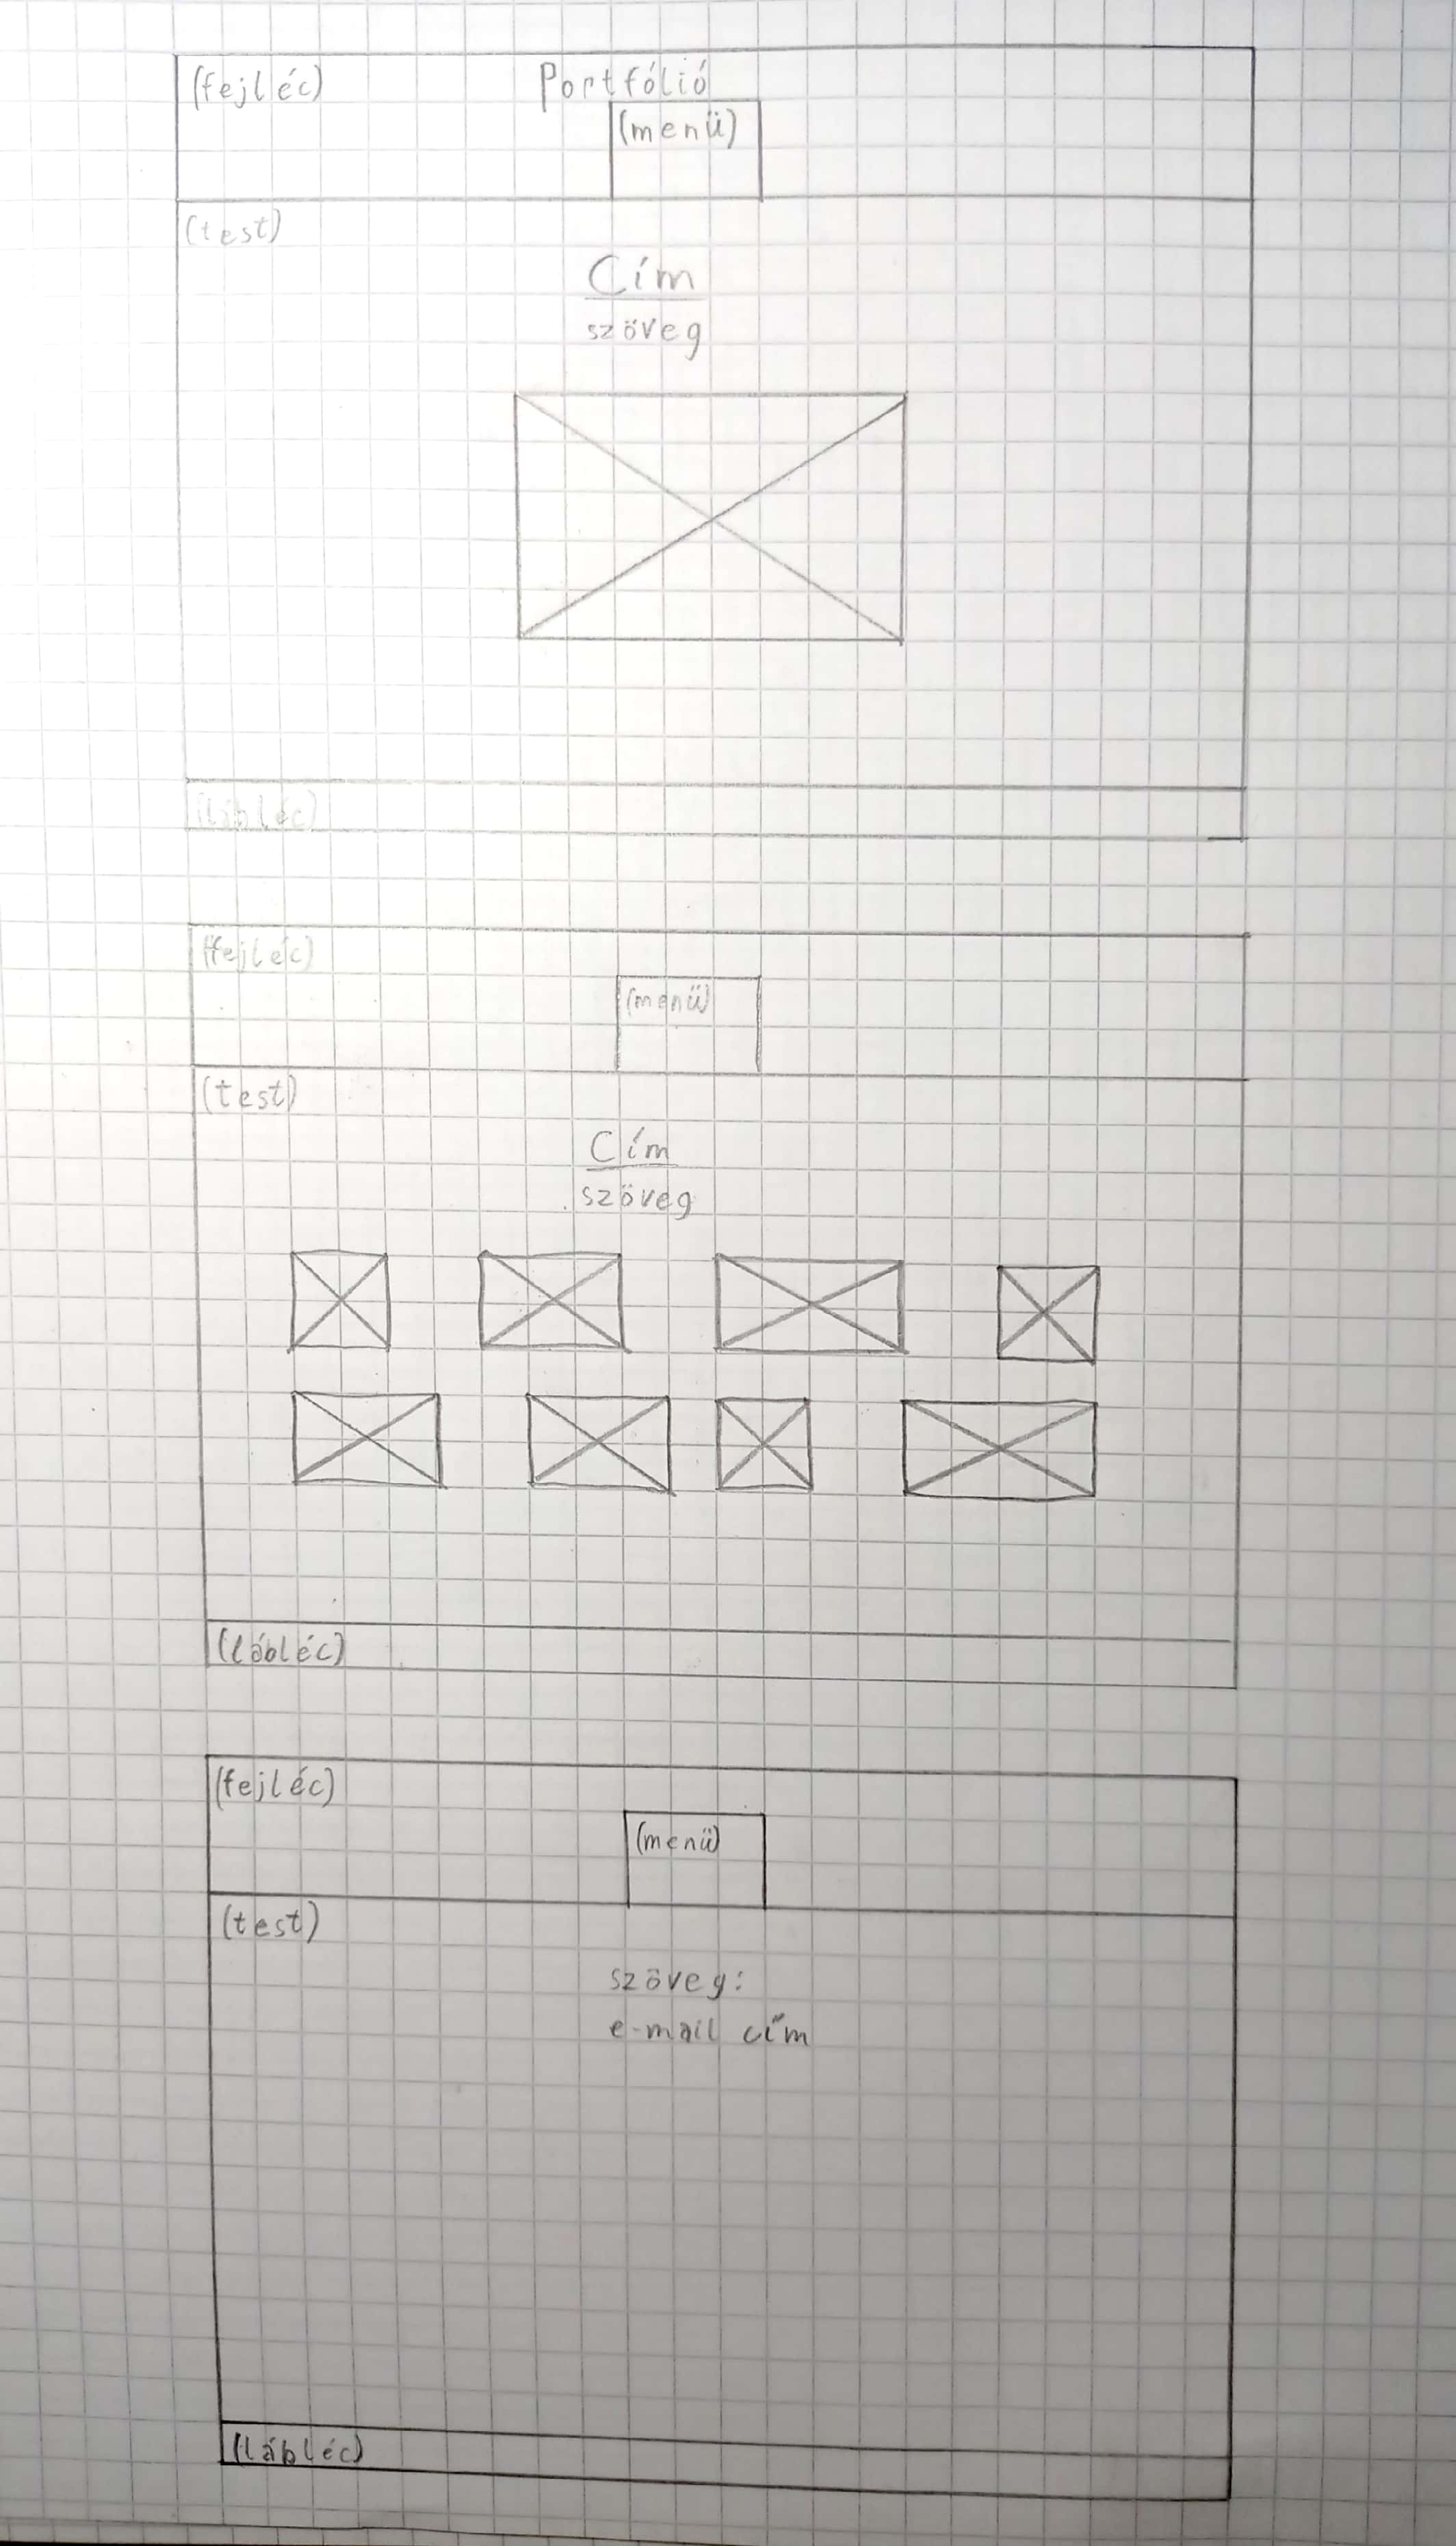 (fejléc)
Portfólió
(menü)
(test)
Cím
szöveg
(lábléc)
(fejléc)
(menü)
(test)
Cím
szöveg
(lábléc)
(fejléc)
(menü)
(test)
szöveg:
e-mail cím
(lábléc)